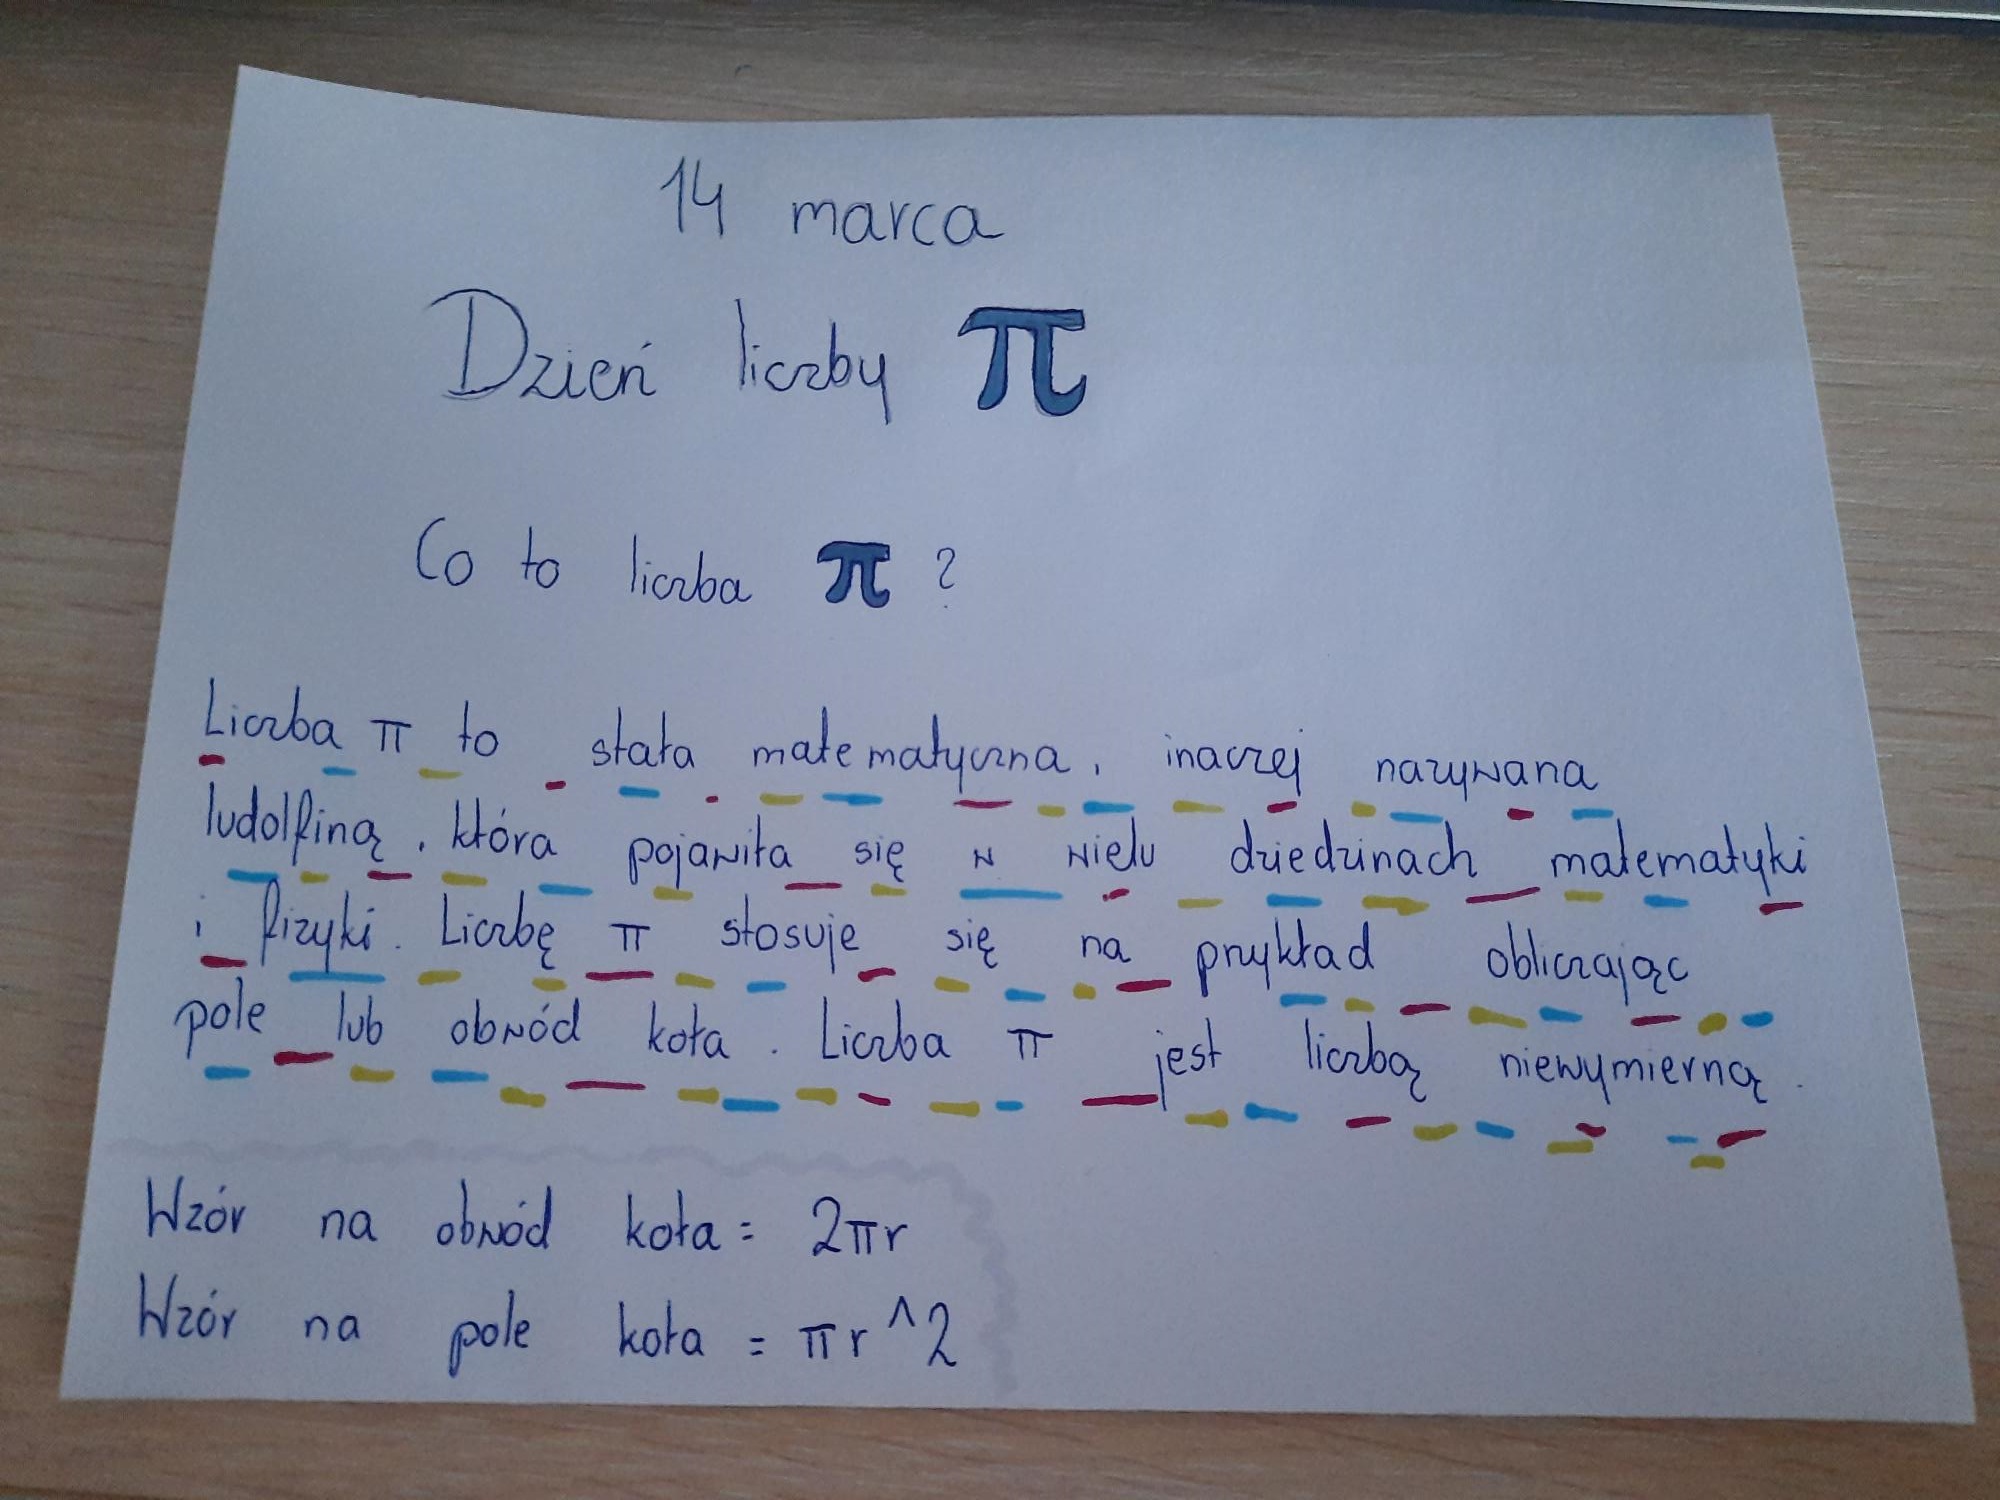 14 marca
Dzień liczby π
Co to liczba π ?
Liczba π to stała matematyczna, inaczej nazywana
ludolfiną, która pojawiła się w wielu dziedzinach matematyki
i fizyki. Liczbę π stosuje się na przykład obliczając
pole lub obwód koła. Liczba π jest liczbą niewymierną.
Wzór na obwód koła = 2πr
Wzór na pole koła = πr^2